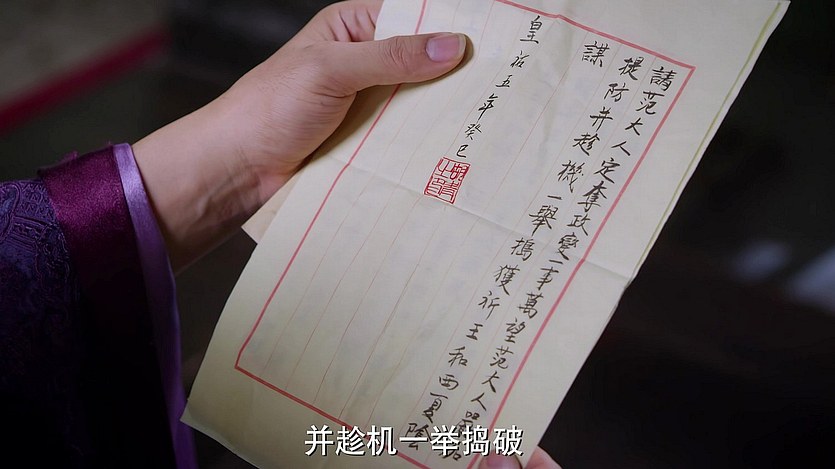 請范大人定奪政變一事萬望范大人
提防并趁機一舉搗獲祈王和西夏陰
謀
皇祐五年癸巳
并趁机一举捣破